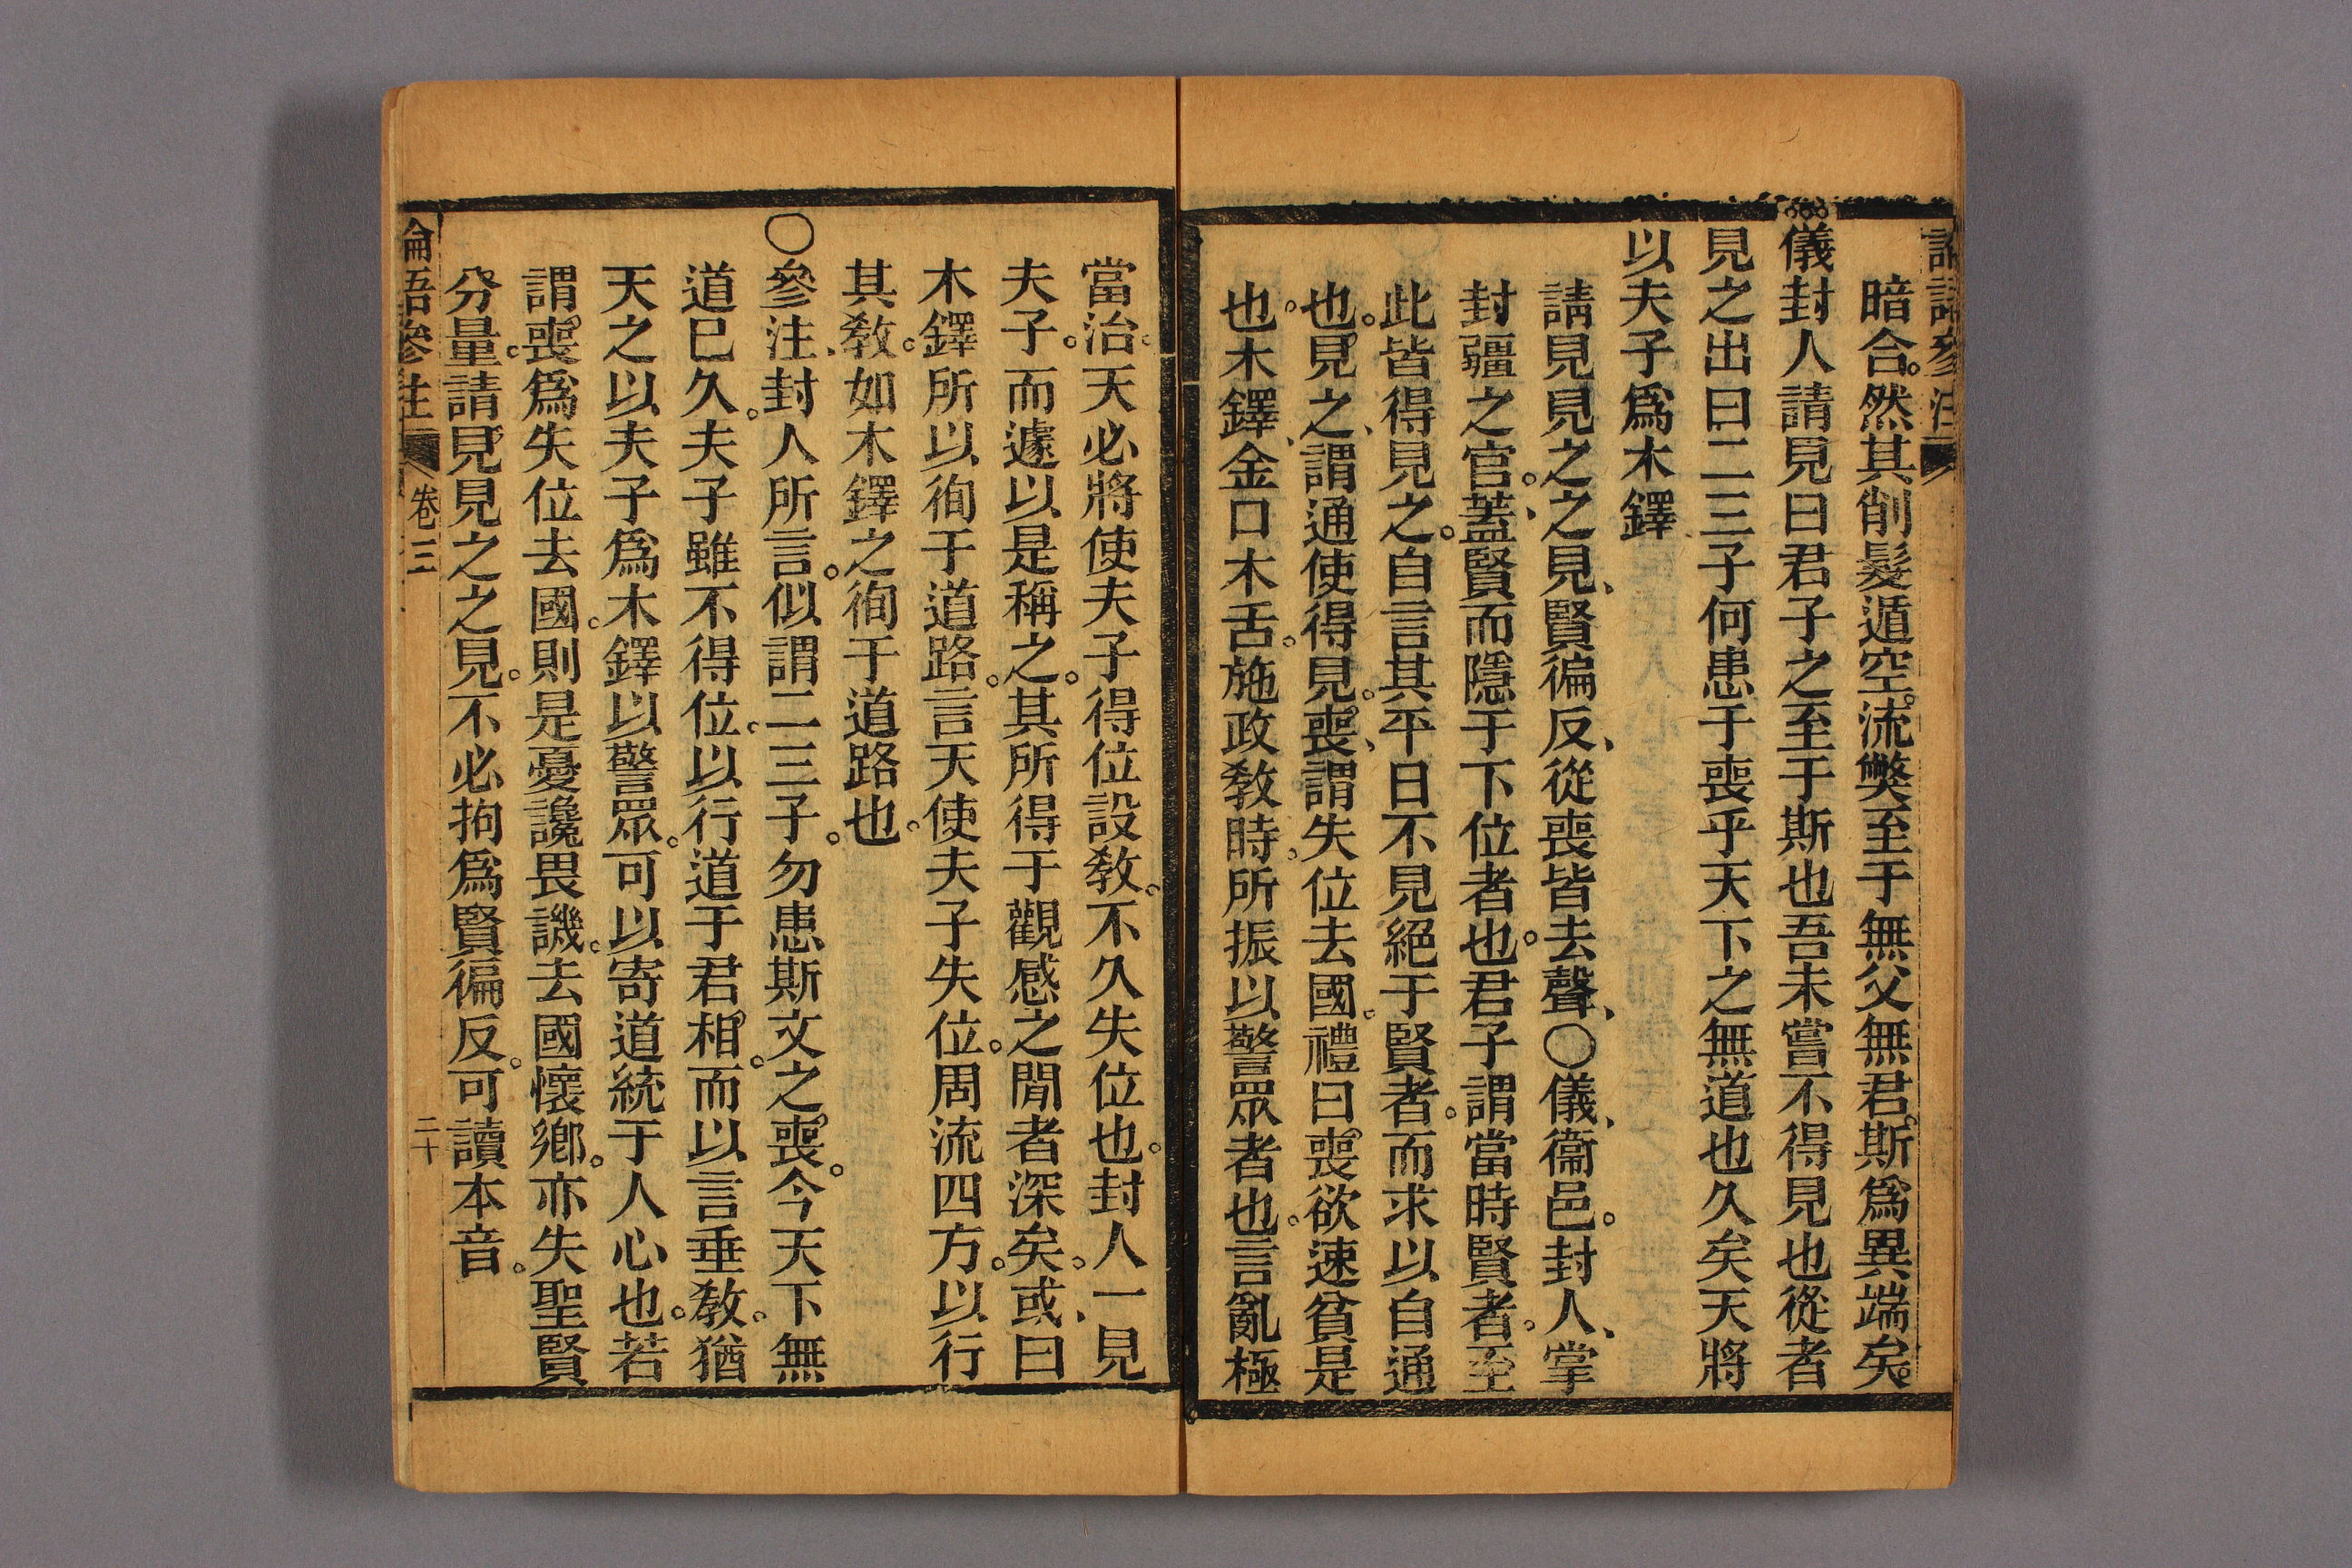 論語參注
暗合。然其削髮遁空。流獘至于無父無君。斯爲異端矣。
儀封人請見曰君子之至于斯也吾未嘗不得見也從者
見之出曰二三子何患于喪乎天下之無道也久矣天將
以夫子爲木鐸
請見見之之見、賢徧反、從喪皆去聲、〇儀、衞邑。封人、掌
封疆之官。蓋、賢而隱于下位者也。君子謂當時賢者。至
此皆得見之。自言其平日不見絕于賢者。而求以自通
也。見之、謂通使得見。喪、謂失位去國。禮曰喪欲速貧是
也。木鐸、金口木舌。施政敎時。所振以警眾者也。言亂極
當治。天必將使夫子得位設敎。不久失位也。封人一見
夫子。而遽以是稱之。其所得于觀感之閒者深矣。或、曰
木鐸所以徇于道路。言天使夫子失位。周流四方。以行
其敎。如木鐸之徇于道路也。
〇參注、封人所言。似謂二三子。勿患斯文之喪。今天下無
道巳久。夫子雖不得位。以行道于君相。而以言垂敎。猶
天之以夫子爲木鐸以警眾。可以寄道統于人心也。若
謂喪爲失位去國。則是憂讒畏譏。去國懷鄉。亦失聖賢
分量。請見見之之見。不必拘爲賢徧反。可讀本音。
論語參注
卷三
二十